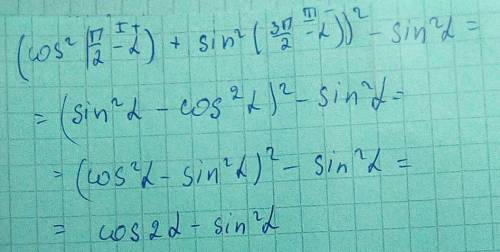 (cos² (π/2 - α) + sin² (3π/2 - α))² - sin²α =
I +
III -
= (sin²α - cos²α)² - sin²α =
= (cos²α - sin²α)² - sin²α =
= cos2α - sin²α